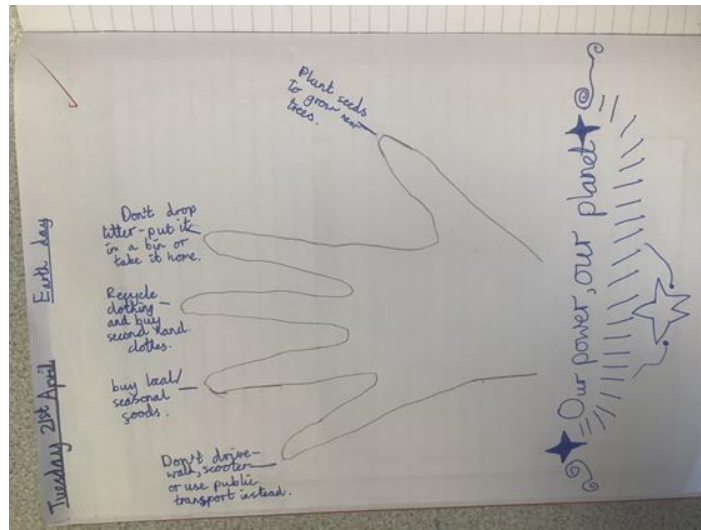 Tuesday 21st April
Earth day
Plant seeds
to grow new
trees.
Don't drop
litter-put it
in a bin or
take it home.
Recycle
clothing
and buy
second hand
clothes.
buy local/
seasonal
goods.
Don't drive-
walk, scooter
or use public
transport instead.
Our power, our planet